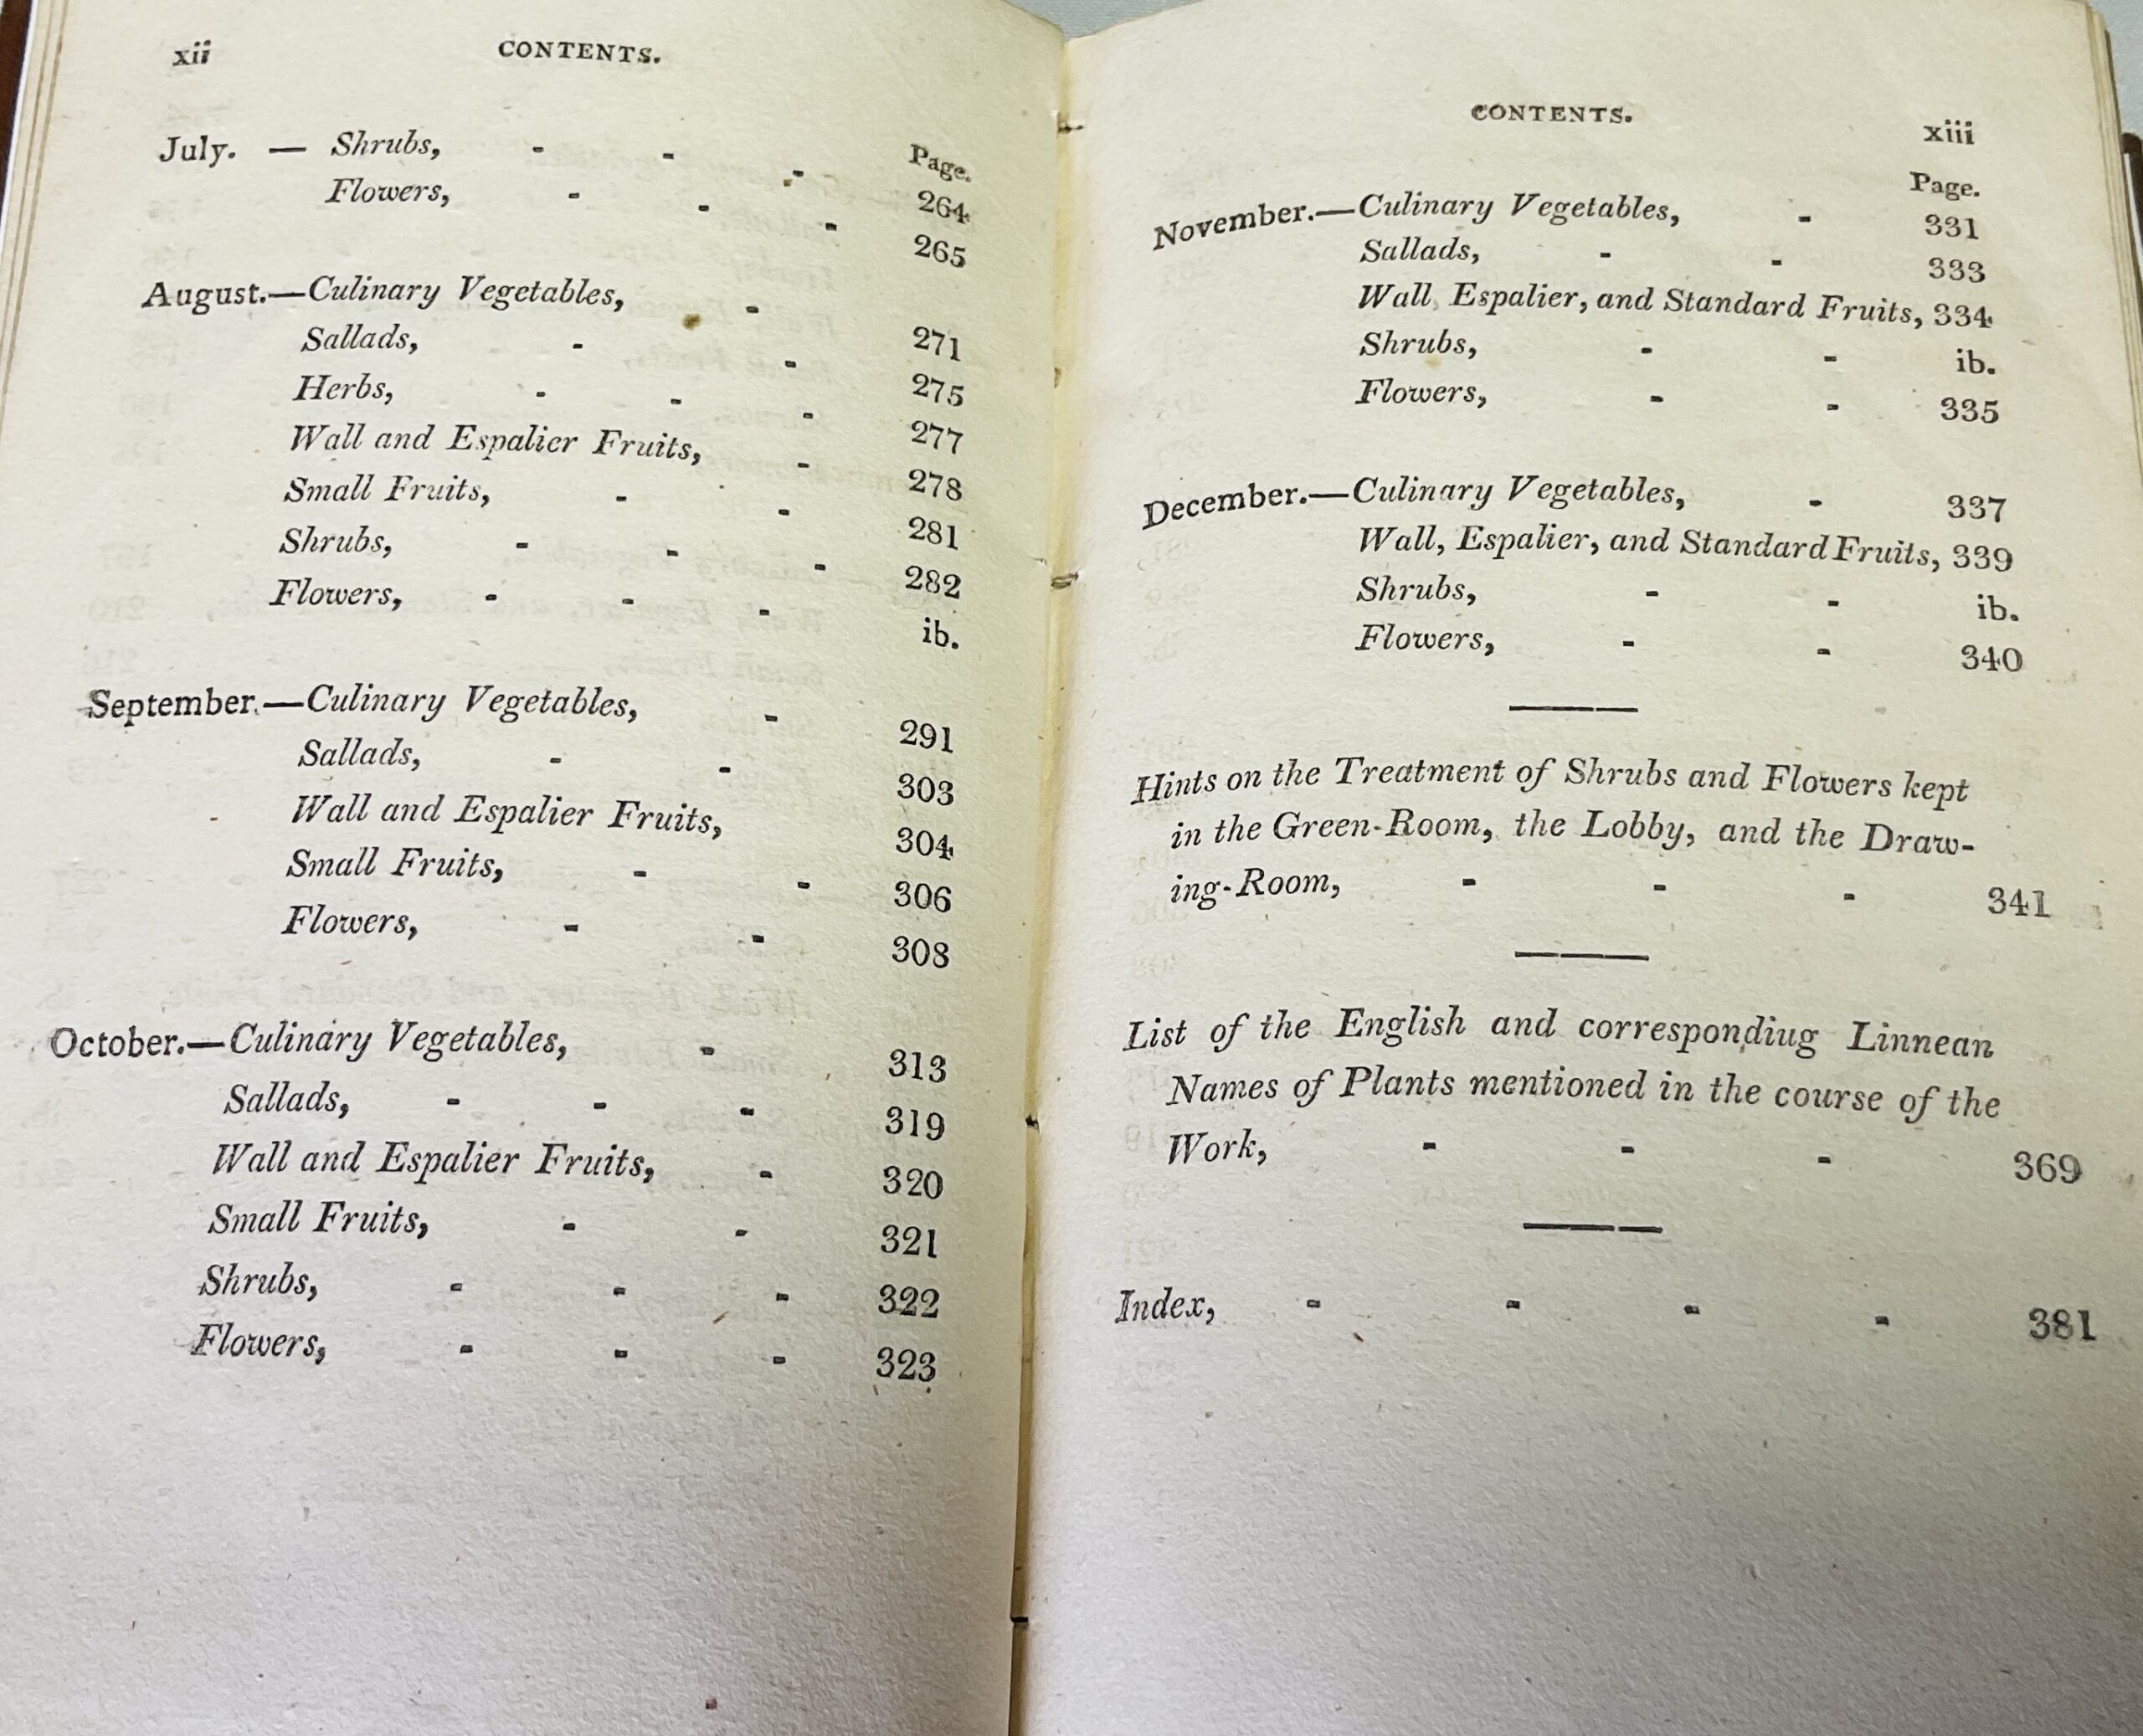 xii CONTENTS.
Page.
July. — Shrubs, - - - 264
Flowers, - - - 265
August.—Culinary Vegetables, - 271
Sallads, - - 275
Herbs, - - - 277
Wall and Espalier Fruits, - 278
Small Fruits, - - 281
Shrubs, - - - 282
Flowers, - - - ib.
September.—Culinary Vegetables, - 291
Sallads, - - 303
Wall and Espalier Fruits, 304
Small Fruits, - - 306
Flowers, - - 308
October.—Culinary Vegetables, - 313
Sallads, - - - 319
Wall and Espalier Fruits, - 320
Small Fruits, - - 321
Shrubs, - - - 322
Flowers, - - - 323
CONTENTS. xiii
Page.
November.—Culinary Vegetables, - 331
Sallads, - - 333
Wall, Espalier, and Standard Fruits, 334
Shrubs, - - ib.
Flowers, - - 335
December.—Culinary Vegetables, - 337
Wall, Espalier, and Standard Fruits, 339
Shrubs, - - ib.
Flowers, - - 340
Hints on the Treatment of Shrubs and Flowers kept
in the Green-Room, the Lobby, and the Draw-
ing-Room, - - - 341
List of the English and correspondiug Linnean
Names of Plants mentioned in the course of the
Work, - - - 369
Index, - - - - 381